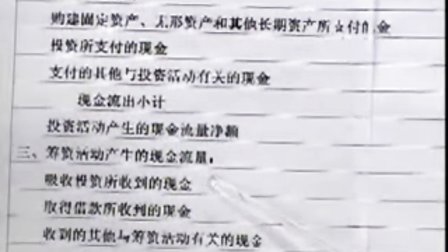 购建固定资产、无形资产和其他长期资产所支付的现金
投资所支付的现金
支付的其他与投资活动有关的现金
现金流出小计
投资活动产生的现金流量净额
三、筹资活动产生的现金流量:
吸收投资所收到的现金
取得借款所收到的现金
收到的其他与筹资活动有关的现金